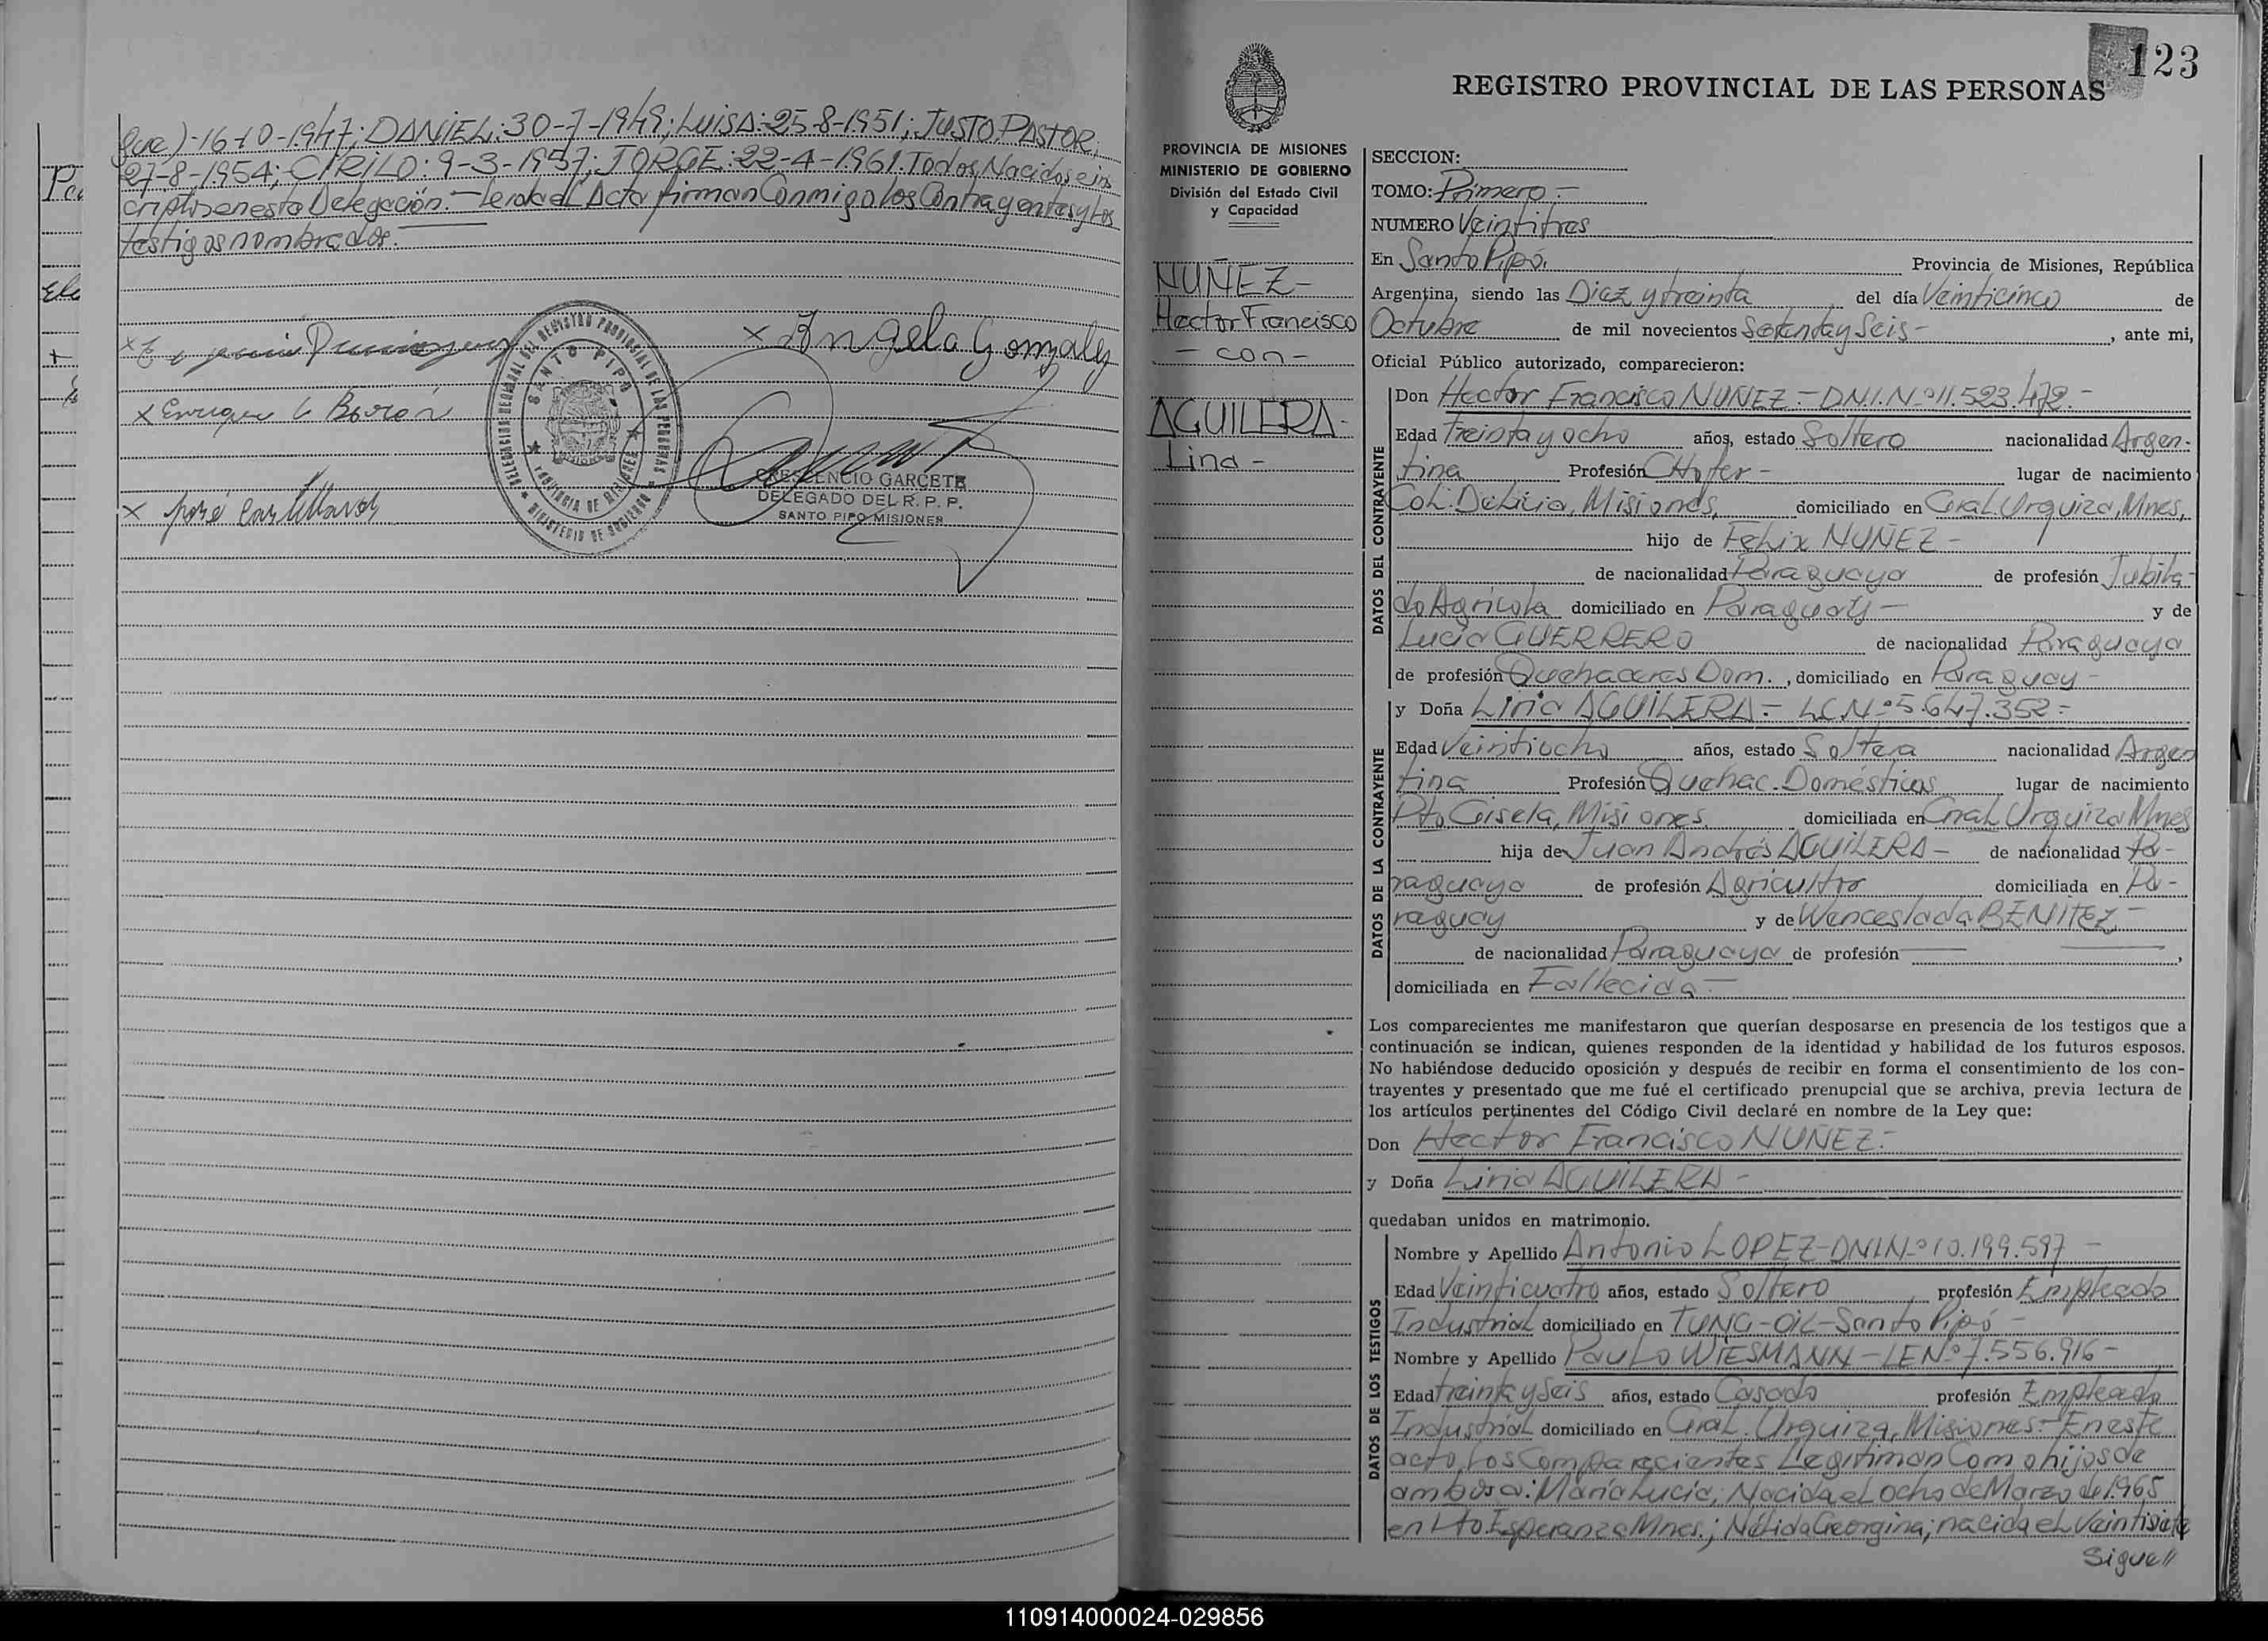 que) 16-10-1947; DANIEL: 30-7-1949; LUISA: 25-8-1951; JUSTO PASTOR;
27-8-1954; CIRILO: 9-3-1957; JORGE: 22-4-1961. Todos Nacidos e ins
criptos en esta Delegación. — Leida el Acta firman Conmigo los Contrayentes y los
testigos nombrados.
x Angela Gonzalez
x Enrique Barón
x José
DELEGACION GENERAL DEL REGISTRO PROVINCIAL DE LAS PERSONAS
SANTO PIPO
PROVINCIA DE MISIONES
MINISTERIO DE GOBIERNO
CRESCENCIO GARCETE
DELEGADO DEL R. P. P.
SANTO PIPO MISIONES
123
REGISTRO PROVINCIAL DE LAS PERSONAS
PROVINCIA DE MISIONES
MINISTERIO DE GOBIERNO
División del Estado Civil
y Capacidad
NUÑEZ-
Hector Francisco
- con -
AGUILERA-
Lina -
SECCION:
TOMO: Primero.-
NUMERO Veintitres
En Santo Pipó. Provincia de Misiones, República
Argentina, siendo las Diez y treinta del día Veinticinco de
Octubre de mil novecientos Setenta y Seis- , ante mi,
Oficial Público autorizado, comparecieron:
DATOS DEL CONTRAYENTE
Don Hector Francisco NUÑEZ.- D.N.I. Nº 11.523.472.-
Edad Treinta y ocho años, estado Soltero nacionalidad Argen-
tina Profesión Chofer- lugar de nacimiento
Col. Delicia, Misiones, domiciliado en Gral. Urquiza, Mnes,
hijo de Felix NUÑEZ-
de nacionalidad Paraguaya de profesión Jubila-
do Agrícola domiciliado en Paraguay- y de
Lucia GUERRERO de nacionalidad Paraguaya
de profesión Quehaceres Dom. , domiciliado en Paraguay-
DATOS DE LA CONTRAYENTE
y Doña Liria AGUILERA- L.C. Nº 5.647.352-
Edad Veintiocho años, estado Soltera nacionalidad Argen
tina Profesión Quehac. Domésticos lugar de nacimiento
Pto Gisela, Misiones. domiciliada en Gral Urquiza Mnes
hija de Juan Andrés AGUILERA- de nacionalidad Pa-
raguaya de profesión Agricultor domiciliada en Pa-
raguay y de Wenceslada BENITEZ-
de nacionalidad Paraguaya de profesión ——— ,
domiciliada en Fallecida-
Los comparecientes me manifestaron que querían desposarse en presencia de los testigos que a
continuación se indican, quienes responden de la identidad y habilidad de los futuros esposos.
No habiéndose deducido oposición y después de recibir en forma el consentimiento de los con-
trayentes y presentado que me fué el certificado prenupcial que se archiva, previa lectura de
los artículos pertinentes del Código Civil declaré en nombre de la Ley que:
Don Hector Francisco NUÑEZ.-
y Doña Liria AGUILERA-
quedaban unidos en matrimonio.
DATOS DE LOS TESTIGOS
Nombre y Apellido Antonio LOPEZ-DNI Nº 10.199.597 -
Edad Veinticuatro años, estado Soltero profesión Empleado
Industrial domiciliado en TUNG-OIL-Santo Pipó -
Nombre y Apellido Paulo WIESMANN-LE Nº 7.556.916-
Edad treinta y Seis años, estado Casado profesión Empleado
Industrial domiciliado en Gral. Urquiza, Misiones.- En este
acto los Comparecientes Legitiman Como hijos de
ambos a: María Lucia, Nacida el ocho de Marzo de 1965
en Pto Esperanza Mnes.; Nélida Georgina; nacida el Veintisiete
Sigue//
110914000024-029856